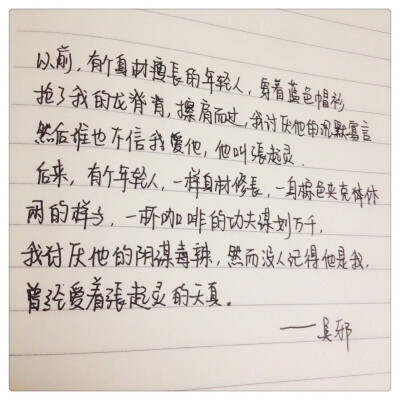 以前，有个身材修長的年轻人，穿着蓝色帽衫
抢了我的龙脊背，擦肩而过，我讨厌他的沉默寡言
然后谁也不信我愛他，他叫張起灵.
后来，有个年轻人，一样身材修長，一身棕色夹克
两的样子，一杯咖啡的功夫谋划万千，
我讨厌他的阴谋毒辣，然而没人记得他是我.
曾经愛着張起灵的天真。
——吴邪